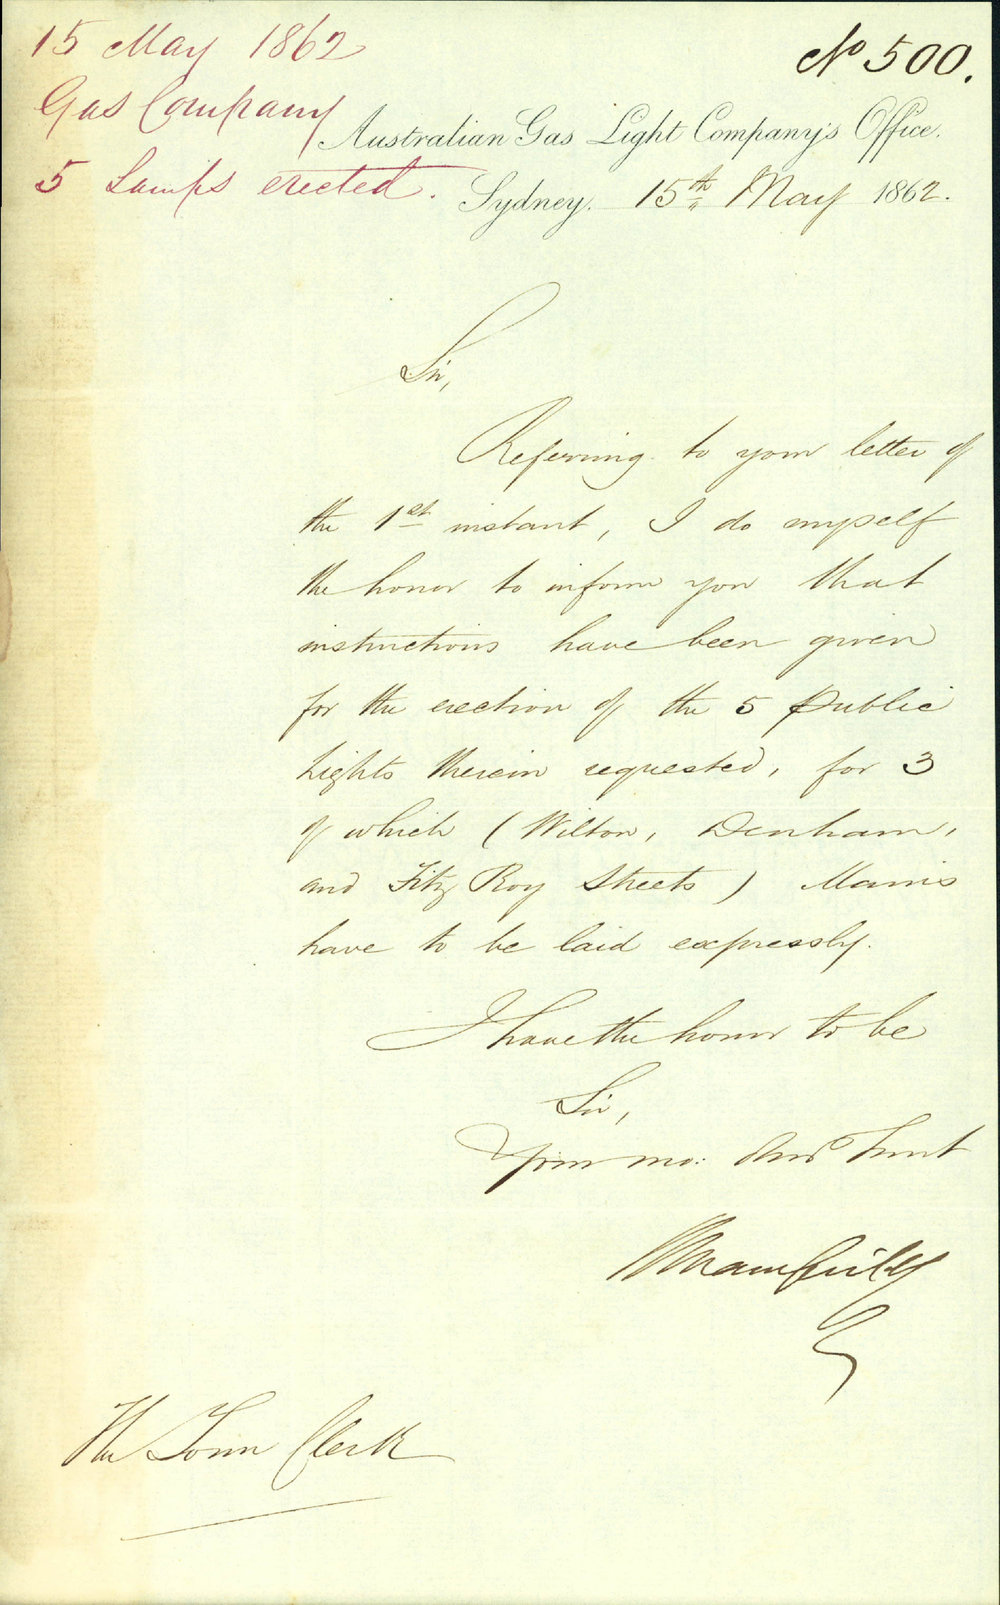 15 May 1862
Gas Company
5 Lamps erected.
No 500.
Australian Gas Light Company's Office.
Sydney. 15th May 1862.
Sir,
Referring to your letter of
the 1st instant, I do myself
the honor to inform you that
instructions have been given
for the erection of the 5 public
lights therein requested, for 3
of which (Wilton, Denham,
and Fitz Roy Streets) Mains
have to be laid expressly.
I have the honor to be
Sir,
Your mo: Obt Servt
The Town Clerk